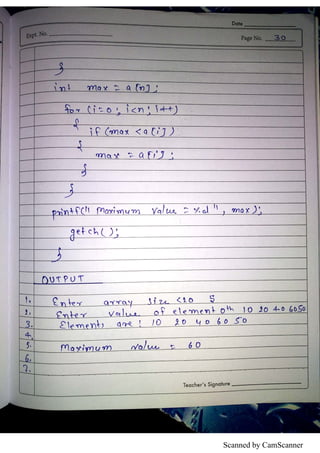 Date
Expt. No.
Page No. 30
}
int max = a[n];
for (i=0; i<n; i++)
{
if (max <a[i])
{
max = a[i];
}
}
printf(" Maximum value = %d", max);
getch();
}
OUTPUT
1. Enter array size <20 5
2. Enter value of element 0th 10 20 40 60 50
3. Elements are : 10 20 40 60 50
4.
5. Maximum value = 60
6.
7.
Teacher's Signature
Scanned by CamScanner